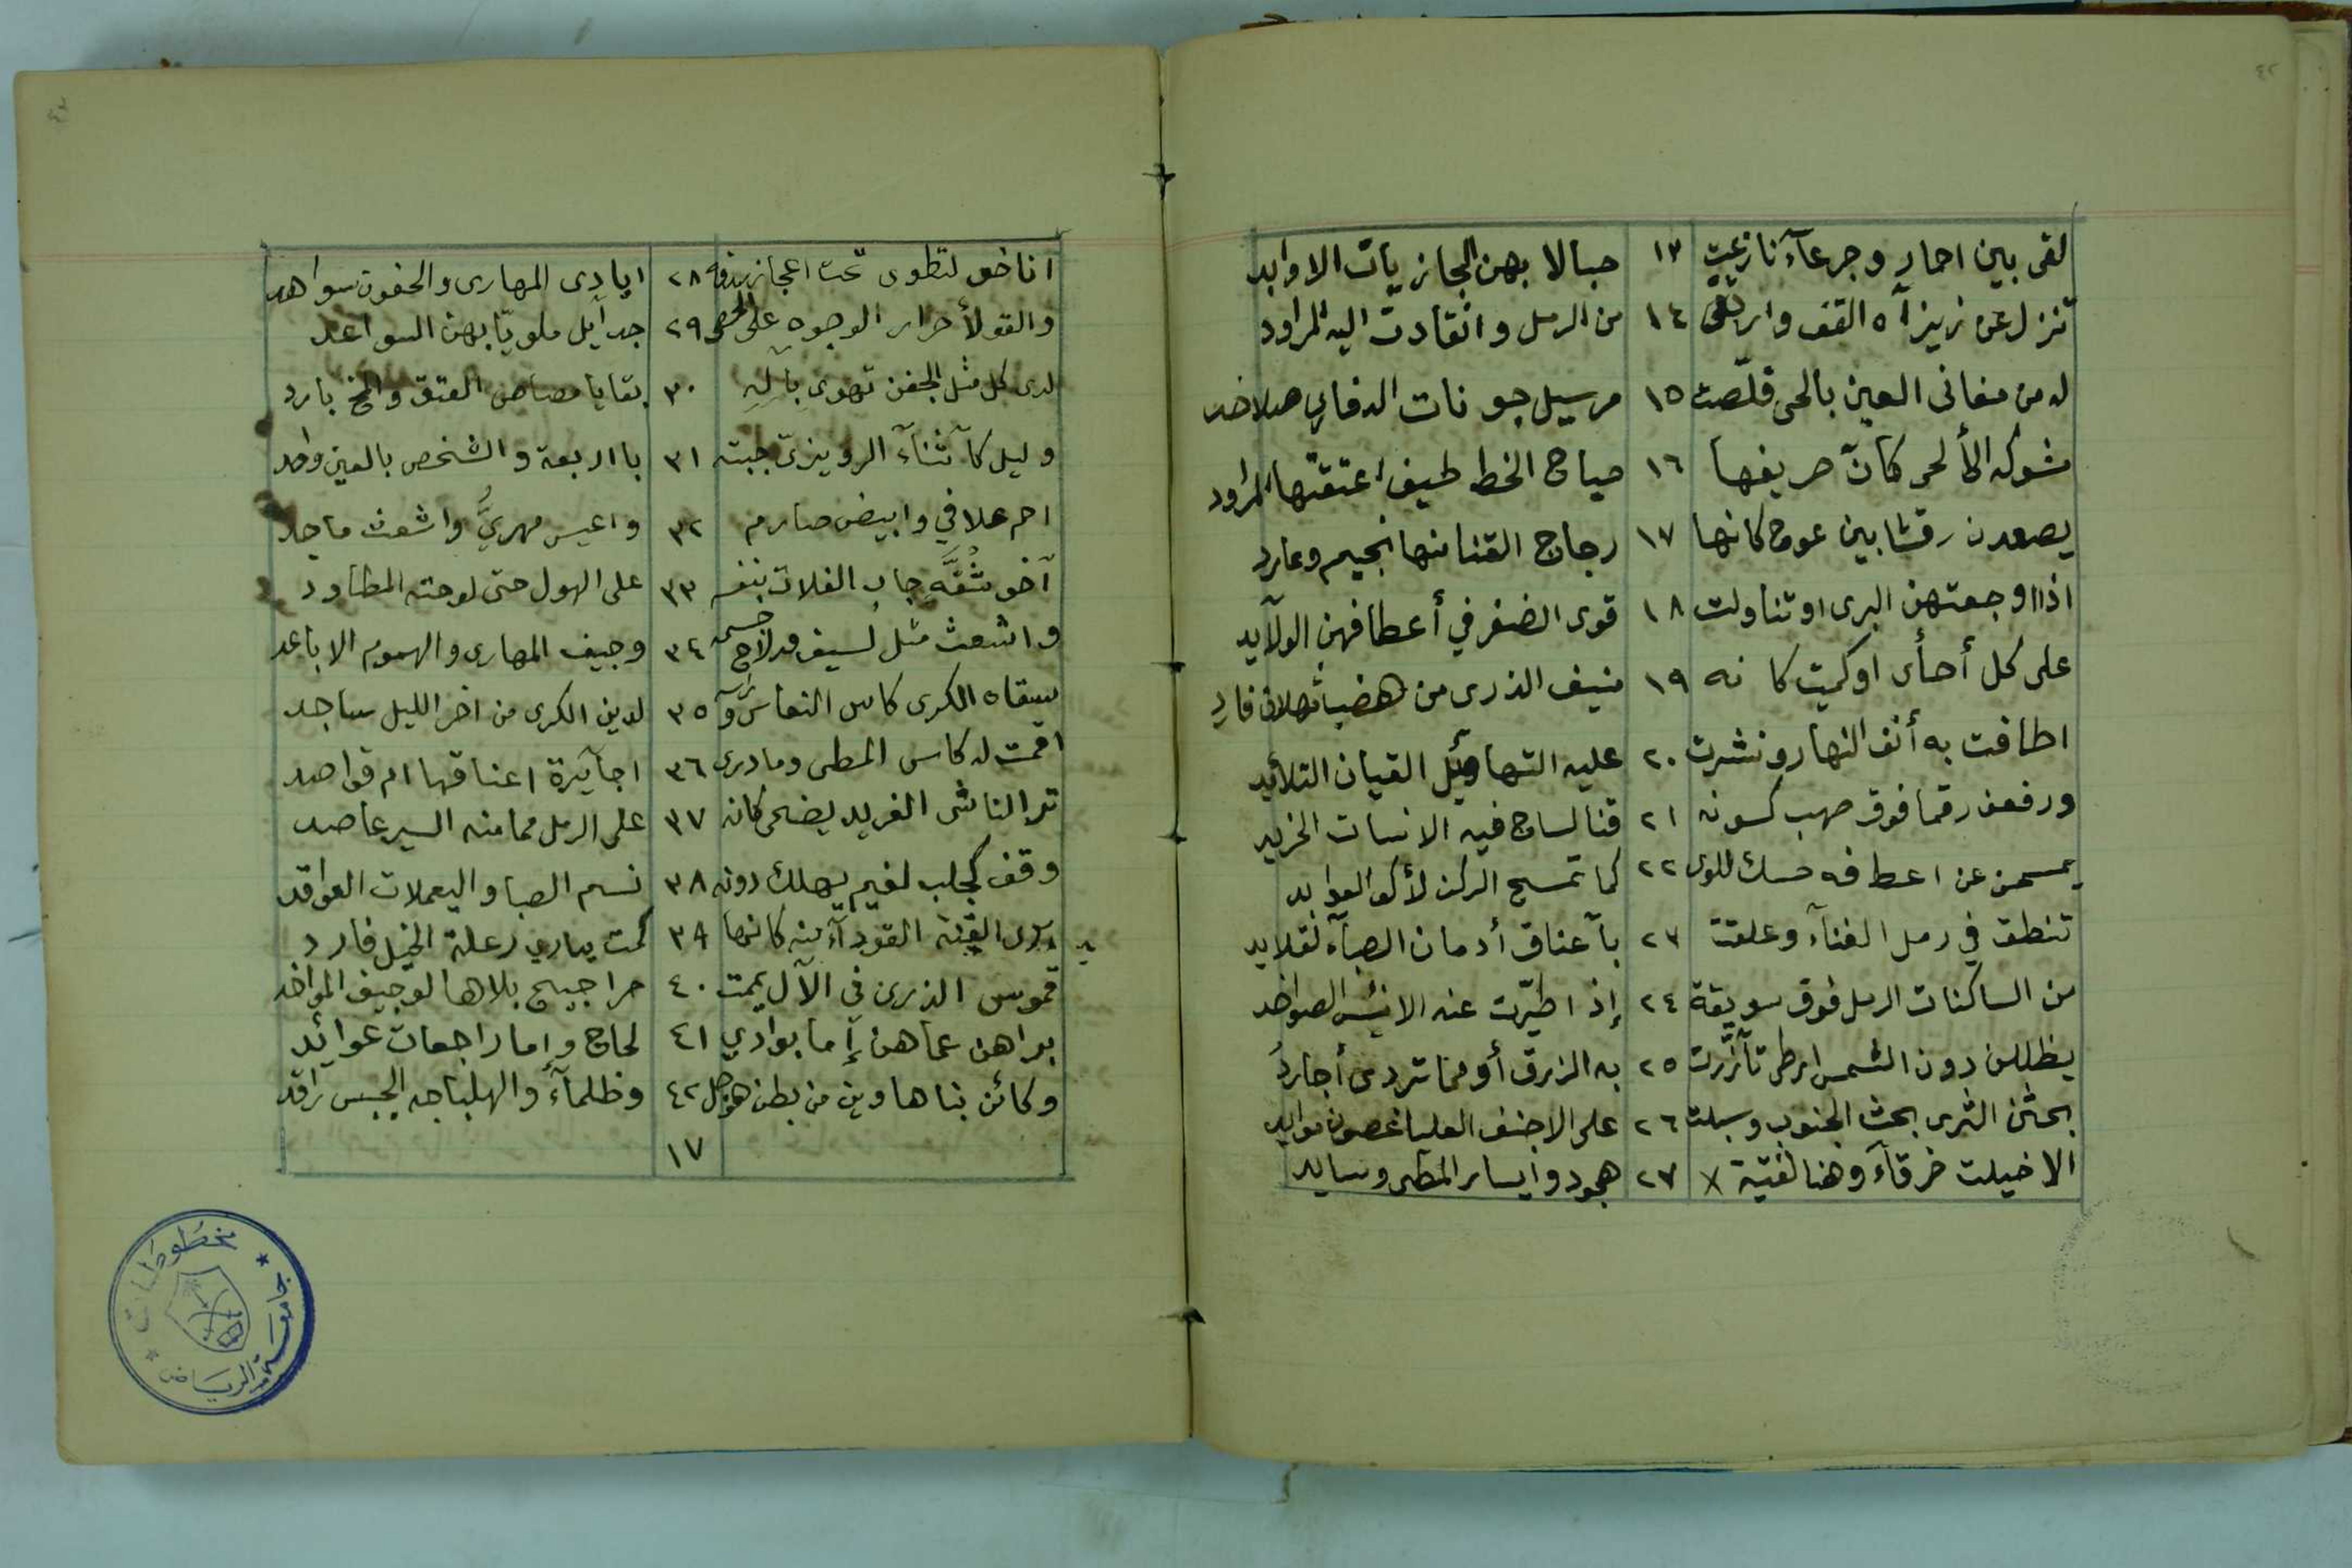 ٤٢
لقى بين احمارٍ وجرعآء نازعت ١٣ حبالا بهن الجازيات الاوابد
تنزل عن زيزآه القف وارتقى ١٤ من الرمل وانقادت اليه المراود
له من مغانى العين بالحى قلّصت ١٥ مرسيل جونات الدفاري صلاخد
مشوكه الألحى كانّ صريفها ١٦ صياح الخط طيف اعتقتها المراود
يصعدن رقشا بين عوج كانها ١٧ رجاج القنا منها نجيم وعارد
اذا اوجعتهن البرى او تناولت ١٨ قوى الضفر في أعطافهن الولآيد
على كل أحأى او كميت كانه ١٩ منيف الذرى من هضب ثهلان فارد
اطافت به أنف النهار ونشرت ٢٠ عليه التهاويل القيان التلائيد
ورفعن رقما فوق صهب كسونه ٢١ قنا لساج فيه الانسات الخزيد
يمسحن عن اعطافه حسك اللوى ٢٢ كما تمسح الركن لأكوا العوابد
تنطق في رمل الغنآء وعلقت ٢٣ بآعناق أدمان الصبآء لقلايد
من الساكنات الرمل فوق سويقة ٢٤ إذا طيّرت عنه الانيس الصواخد
يظللن دون الشمس ارطى تآزّرت ٢٥ به الزرق أو مما تردى أجارد
بحثن الثرى بحث الجنوب وسبلت ٢٦ على الاجنف العليا غصون موايد
الا خيلت خرقآء وهنا لفتية × ٢٧ هجود وايسار المطى وسايد
اناخو لتطوى تحت اعجاز سدفه ٢٨ ايادى المهارى والجفون سواهد
والقو لأحرار الوجوه على الحصى ٢٩ جدآيل ملويّا بهن السواعد
لدى كل مثل الجفن تهوى بآله ٣٠ بقايا مصاص العتق والمخ بارد
وليل كآثنآء الرويزيّ جبته ٣١ باربعة والشخص بالعين واحد
احم علافي وابيض صارم ٣٢ واعيس مهريُّ واشعث ماجد
آخو شُقَّه جاب الفلات بنفسه ٣٣ على الهول حتى لوحته المطاود
واشعث مثل لسيف قد لاح جسمه ٣٤ وجيف المهارى والهموم الاباعد
سقاه الكرى كاس النعاس ورأسه ٣٥ لدين الكرى من اخر الليل ساجد
اقمت له كاس المطى ومادرى ٣٦ اجآيرة اعناقها ام قواصد
ترا الناشى الغريد يضحى كانه ٣٧ على الرمل مما منه السير عاصد
وقف كجلب لغيم يهلك دونه ٣٨ نسيم الصبا واليعملات العواقد
يرى القنة القودآء منه كانها ٣٩ كمت يباري رعلة الخيل فارد
قموس الذرى في الآل يممت ٤٠ حراجيج بلاها لوجيف المواخد
براهن عماهن إما بوادي ٤١ لحاج وإما راجعات عوائد
وكائن بنا هاوين من بطن هوجل ٤٢ وظلمآء والهلباجه الجبس راقد
١٧
جامعة الرياض
مخطوطات